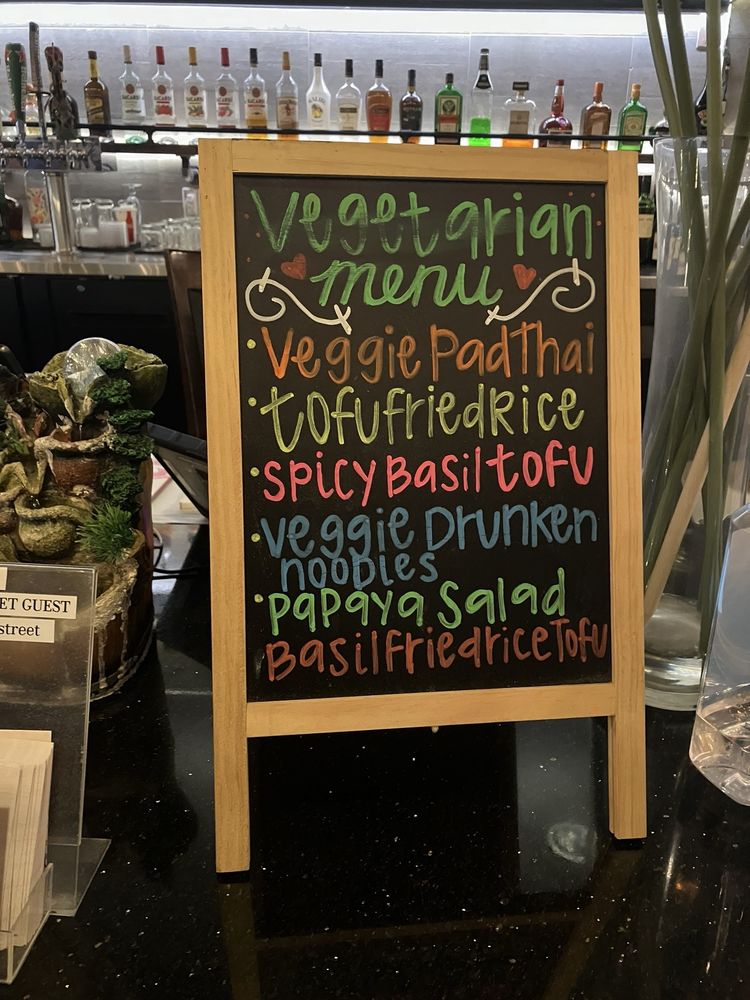 Vegetarian
menu
Veggie PadThai
tofufriedRice
spicyBasiltofu
veggie Drunken
noodles
papaya Salad
BasilfriedriceTofu
ET GUEST
street